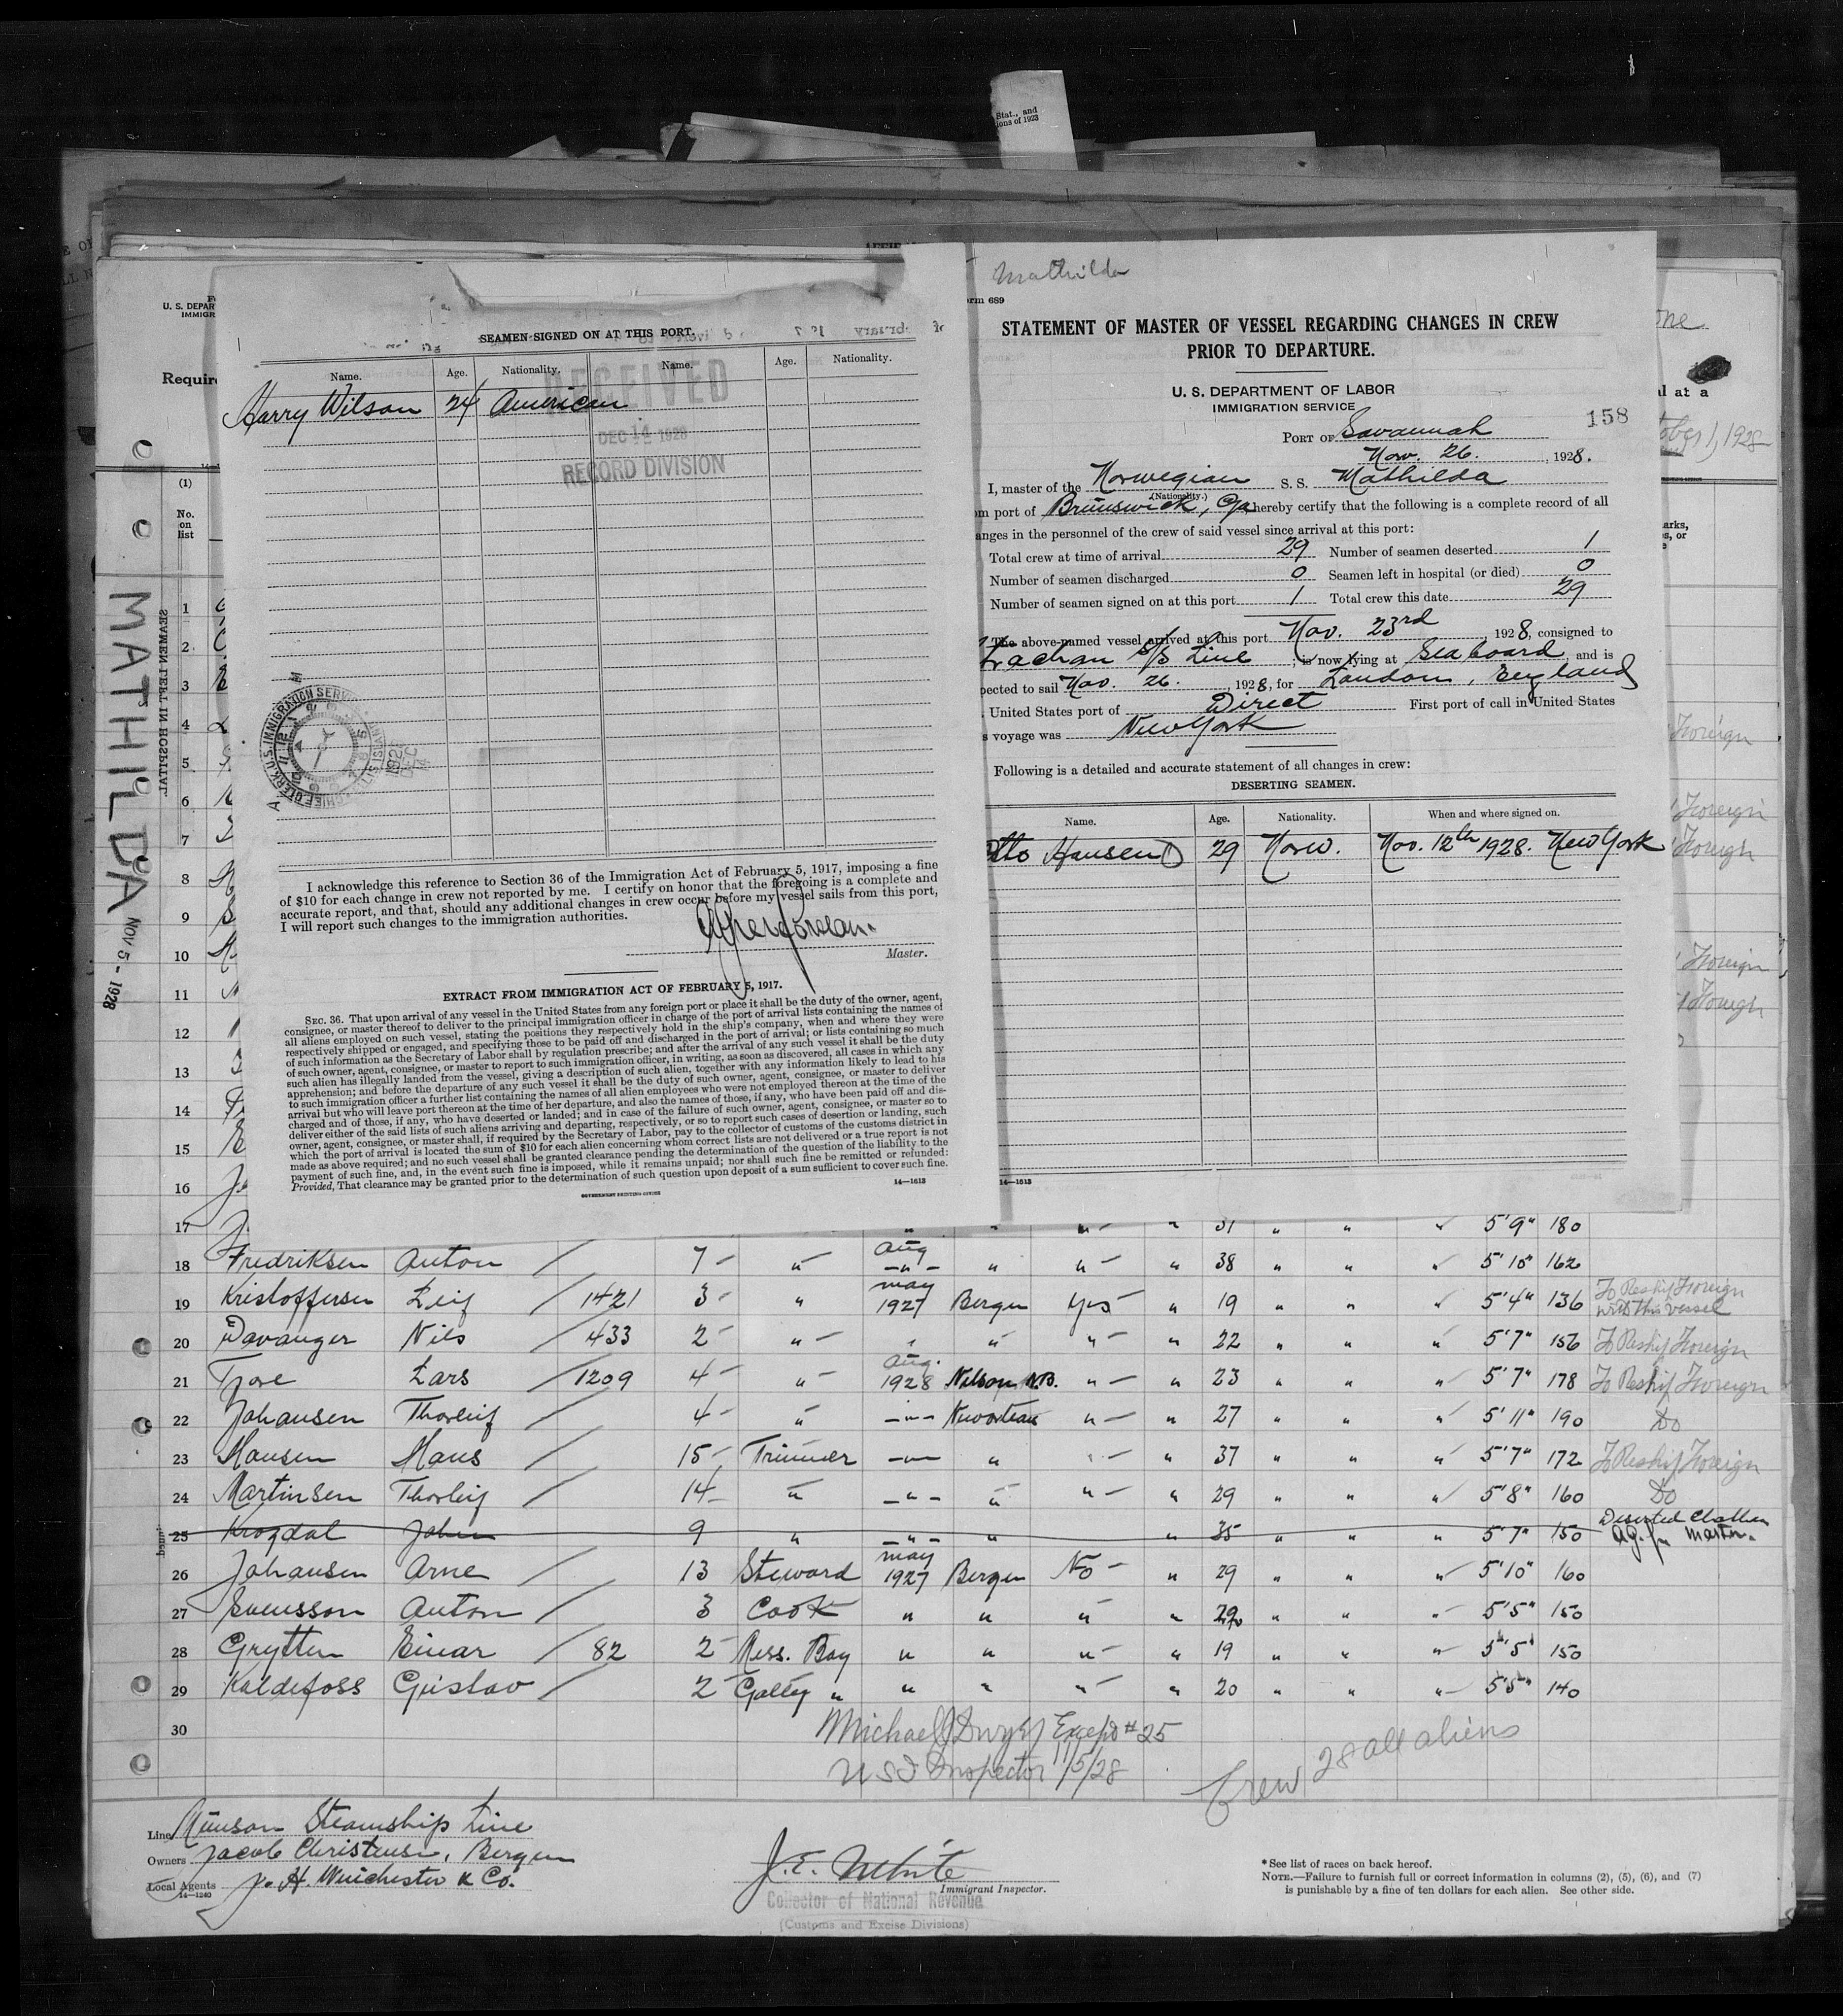 Stat., and
ions of 1923
U. S. DEPAR
IMMIGR
Requir
(1)
No.
on
list
SEAMEN LEFT IN HOSPITAL
MATHILDA
NOV 5 - 1928
SEAMEN SIGNED ON AT THIS PORT.
Name. Age. Nationality. Name. Age. Nationality.
Harry Wilson 24 American
RECEIVED
DEC 14 1928
RECORD DIVISION
I acknowledge this reference to Section 36 of the Immigration Act of February 5, 1917, imposing a fine
of $10 for each change in crew not reported by me. I certify on honor that the foregoing is a complete and
accurate report, and that, should any additional changes in crew occur before my vessel sails from this port,
I will report such changes to the immigration authorities.
Master.
EXTRACT FROM IMMIGRATION ACT OF FEBRUARY 5, 1917.
SEC. 36. That upon arrival of any vessel in the United States from any foreign port or place it shall be the duty of the owner, agent,
consignee, or master thereof to deliver to the principal immigration officer in charge of the port of arrival lists containing the names of
all aliens employed on such vessel, stating the positions they respectively hold in the ship's company, when and where they were
respectively shipped or engaged, and specifying those to be paid off and discharged in the port of arrival; or lists containing so much
of such information as the Secretary of Labor shall by regulation prescribe; and after the arrival of any such vessel it shall be the duty
of such owner, agent, consignee, or master to report to such immigration officer, in writing, as soon as discovered, all cases in which any
such alien has illegally landed from the vessel, giving a description of such alien, together with any information likely to lead to his
apprehension; and before the departure of any such vessel it shall be the duty of such owner, agent, consignee, or master to deliver
to such immigration officer a further list containing the names of all alien employees who were not employed thereon at the time of the
arrival but who will leave port thereon at the time of her departure, and also the names of those, if any, who have been paid off and dis-
charged and of those, if any, who have deserted or landed; and in case of the failure of such owner, agent, consignee, or master so to
deliver either of the said lists of such aliens arriving and departing, respectively, or so to report such cases of desertion or landing, such
owner, agent, consignee, or master shall, if required by the Secretary of Labor, pay to the collector of customs of the customs district in
which the port of arrival is located the sum of $10 for each alien concerning whom correct lists are not delivered or a true report is not
made as above required; and no such vessel shall be granted clearance pending the determination of the question of the liability to the
payment of such fine, and, in the event such fine is imposed, while it remains unpaid; nor shall such fine be remitted or refunded:
Provided, That clearance may be granted prior to the determination of such question upon deposit of a sum sufficient to cover such fine.
GOVERNMENT PRINTING OFFICE 14—1613
Mathilda
orm 689
STATEMENT OF MASTER OF VESSEL REGARDING CHANGES IN CREW
PRIOR TO DEPARTURE.
U. S. DEPARTMENT OF LABOR
IMMIGRATION SERVICE
158
PORT OF Savannah
Nov. 26. , 1928.
I, master of the Norwegian S. S. Mathilda
(Nationality.)
om port of Brunswick, Ga, hereby certify that the following is a complete record of all
anges in the personnel of the crew of said vessel since arrival at this port:
Total crew at time of arrival 29 Number of seamen deserted 1
Number of seamen discharged 0 Seamen left in hospital (or died) 0
Number of seamen signed on at this port 1 Total crew this date 29
The above-named vessel arrived at this port Nov. 23rd , 1928, consigned to
Strachan S/S Line ; is now lying at Seaboard, and is
pected to sail Nov. 26. , 1928, for London, England
United States port of Direct First port of call in United States
s voyage was New York
Following is a detailed and accurate statement of all changes in crew:
DESERTING SEAMEN.
Name. Age. Nationality. When and where signed on.
Otto Hansen 29 Norw. Nov. 12th 1928. New York
14—1613
al at a
tober 1, 1928
1
2
3
4 Foreign
5
6 Foreign
7 Foreign
8
9
10 Foreign
11 Foreign
12
13
14
15
16
17 " " " " 31 " " " 5'9" 180
18 Fredriksen Anton / 7 " Aug " " " " 38 " " " 5'10" 162
19 Kristoffersen Leif / 1421 3 " May 1927 Bergen Yes " 19 " " " 5'4" 136 To Reship Foreign with this vessel
20 Davanger Nils / 433 2 " " " " " 22 " " " 5'7" 156 To Reship Foreign
21 Tjore Lars / 1209 4 " Aug. 1928 Nelson N.B. " " 23 " " " 5'7" 178 To Reship Foreign
22 Johansen Thorleif / 4 " " " " 27 " " " 5'11" 190 Do
23 Hansen Hans / 15 Trimmer " " " " 37 " " " 5'7" 172 To Reship Foreign
24 Martinsen Thorleif / 14 " " " " " 29 " " " 5'8" 160 Do
25 Krogdal Johan 9 " " " " 35 " " " 5'7" 150 Deserted
26 Johansen Arne / 13 Steward May 1927 Bergen No " 29 " " " 5'10" 160
27 Svensson Anton / 3 Cook " " " " 29 " " " 5'5" 150
28 Grytten Einar / 82 2 Mess. Boy " " " " 19 " " " 5'5" 150
29 Kaldefoss Gustav / 2 Galley " " " " " 20 " " " 5'5" 140
30
Michael J Dwyer Except #25
U S I Inspector 11/5/28
Crew 28 all aliens
Line Munson Steamship Line
Owners Jacob Christensen, Bergen
Local Agents J. H. Winchester & Co.
14—1240
J. E. White
Immigrant Inspector.
Collector of National Revenue
(Customs and Excise Divisions)
*See list of races on back hereof.
NOTE.—Failure to furnish full or correct information in columns (2), (5), (6), and (7)
is punishable by a fine of ten dollars for each alien. See other side.